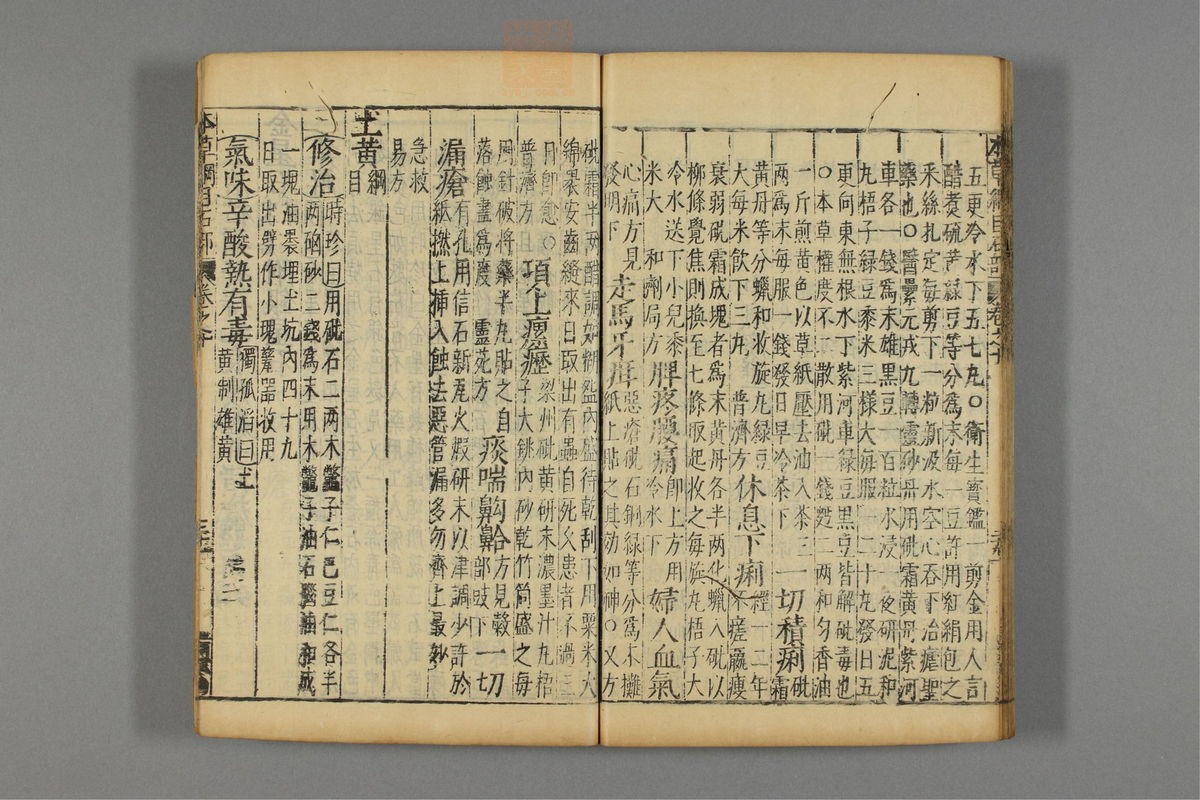 本草綱目石部 卷之十
五更冷水下五七九〇衛生寶鑑一剪金用人言
醋煑硫黄綠豆等分爲末每一豆許用紅絹包之
釆絲扎定每剪下一粒新汲水空心吞下治瘧聖
藥也〇醫壘元戎九轉靈砂丹用砒霜黄丹紫河
車各一錢爲末雄黑豆一百粒水浸一夜研泥和
九梧子綠豆黍米三樣大每服一二十九發日五
更向東無根水下紫河車綠豆黑豆皆解砒毒也
〇本草權度不二散用砒一錢麪二兩和勻香油
一斤煎黄色以草紙壓去油入茶三
兩爲末每服一錢發日早冷茶下 一切積痢 砒霜
黄丹等分蠟和收旋九綠豆
大每米飲下三九 普濟方 休息下痢 經一二年不瘥羸瘦
衰弱砒霜成塊者爲末黄丹各半两化蠟入砒以
柳條攪焦則換至七條取起收之每旋九梧子大
冷水送下小兒黍
米大 和劑局方 脾疼腰痛 即上方用冷水下 婦人血氣
心痛方見
發明下 走馬牙疳 惡瘡砒石銅綠等分爲末攤
紙上貼之其効如神〇又方
砒霜半两醋調如糊盌內盛待乾刮下用粟米大
綿裹安齒縫來日取出有蟲自死久患者不過三
日即愈〇
普濟方 項上瘰癧 梁州砒黄研末濃墨汁九梧
子大銚內炒乾竹筒盛之每
用針破將藥半九貼之自
落蝕盡爲度 靈苑方 痰喘齁𪖙 方見穀部豉下 一切
漏瘡 有孔用信石新瓦火煅研末以津調少許於
紙撚上插入蝕去惡管漏多勿齊上最妙
急救
易方
土黄 綱目
修治 時珍曰用砒石二两木鱉子仁巴豆仁各半
两硇砂二錢爲末用木鱉子油石腦油和成
一塊油裹埋土坑內四十九
日取出劈作小塊甆器收用
氣味辛酸熱有毒 獨孤滔曰土
黄制雄黄
本草綱目石部 卷之十